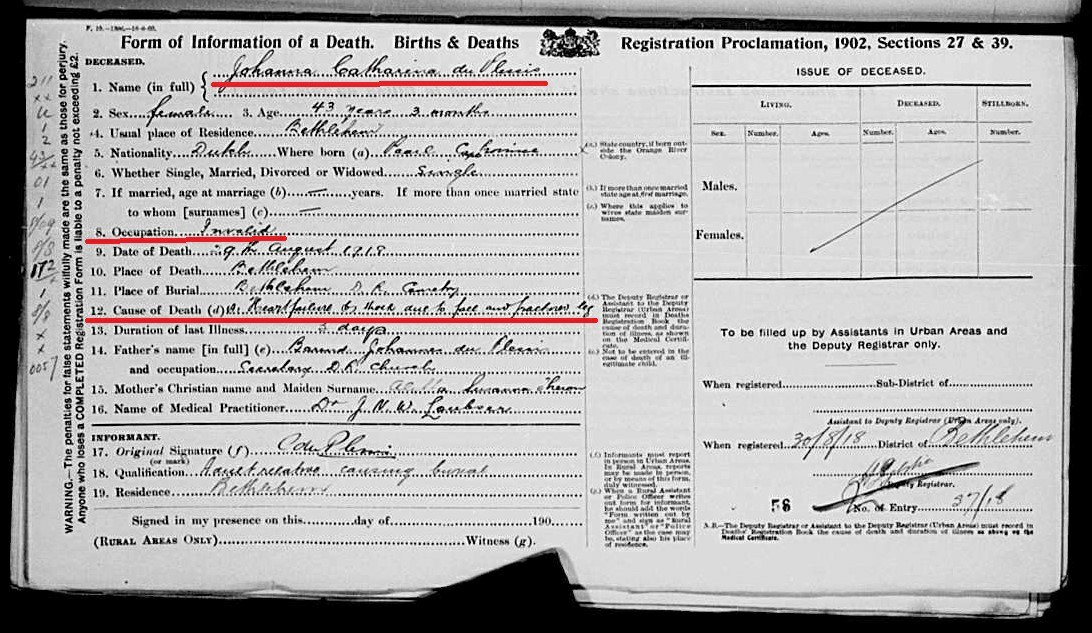 F. 15.
Form of Information of a Death. Births & Deaths Registration Proclamation, 1902, Sections 27 & 39.
WARNING.—The penalties for false statements wilfully made are the same as those for perjury.
Anyone who loses a COMPLETED Registration Form is liable to a penalty not exceeding £2.
DECEASED.
1. Name (in full) Johanna Catharina du Plessis
2. Sex female 3. Age 43 years 3 months
4. Usual place of Residence Bethlehem
5. Nationality Dutch Where born (a) Paarl Cape Province
6. Whether Single, Married, Divorced or Widowed Single
7. If married, age at marriage (b) — years. If more than one married state
to whom [surnames] (c) —
8. Occupation Invalid
9. Date of Death 9th August 1918
10. Place of Death Bethlehem
11. Place of Burial Bethlehem D. R. Cemetery
12. Cause of Death (d) Heartfailure & shock due to fall and fractured leg
13. Duration of last Illness 3 days
14. Father's name [in full] (e) Barend Johannes du Plessis
and occupation Secretary D.R. Church
15. Mother's Christian name and Maiden Surname Susanna Theron
16. Name of Medical Practitioner Dr J. N. W. Loubser
INFORMANT.
17. Original Signature (f) C du Plessis
(or mark)
18. Qualification Adult relative causing burial
19. Residence Bethlehem
Signed in my presence on this day of 190
(RURAL AREAS ONLY) Witness (g).
(a.) State country, if born outside the Orange River Colony.
(b.) If more than once married state age at first marriage.
(c.) Where this applies to wives state maiden surnames.
(d.) The Deputy Registrar or Assistant to the Deputy Registrar (Urban Areas) must record in Deaths Registration Book the cause of death and duration of illness, as shown on the Medical Certificate.
(e.) Not to be entered in the case of death of an illegitimate child.
(f.) Informants must report in person in Urban Areas. In Rural Areas, reports may be made in person, or by means of this form, duly witnessed.
(g.) When a Rural Assistant or Police Officer writes out form for informant, he should add the words "Form written out by me" and sign as "Rural Assistant" or "Police Officer" as the case may be, stating also his place of residence.
ISSUE OF DECEASED.
LIVING. DECEASED. STILLBORN.
Sex. Number. Ages. Number. Ages. Number.
Males.
Females.
To be filled up by Assistants in Urban Areas and
the Deputy Registrar only.
When registered Sub-District of
Assistant to Deputy Registrar (Urban Areas only).
When registered 30/8/18 District of Bethlehem
Deputy Registrar.
58 No. of Entry 37/18
N.B.—The Deputy Registrar or Assistant to the Deputy Registrar (Urban Areas) must record in
Deaths' Registration Book the cause of death and duration of illness as shown on the
Medical Certificate.